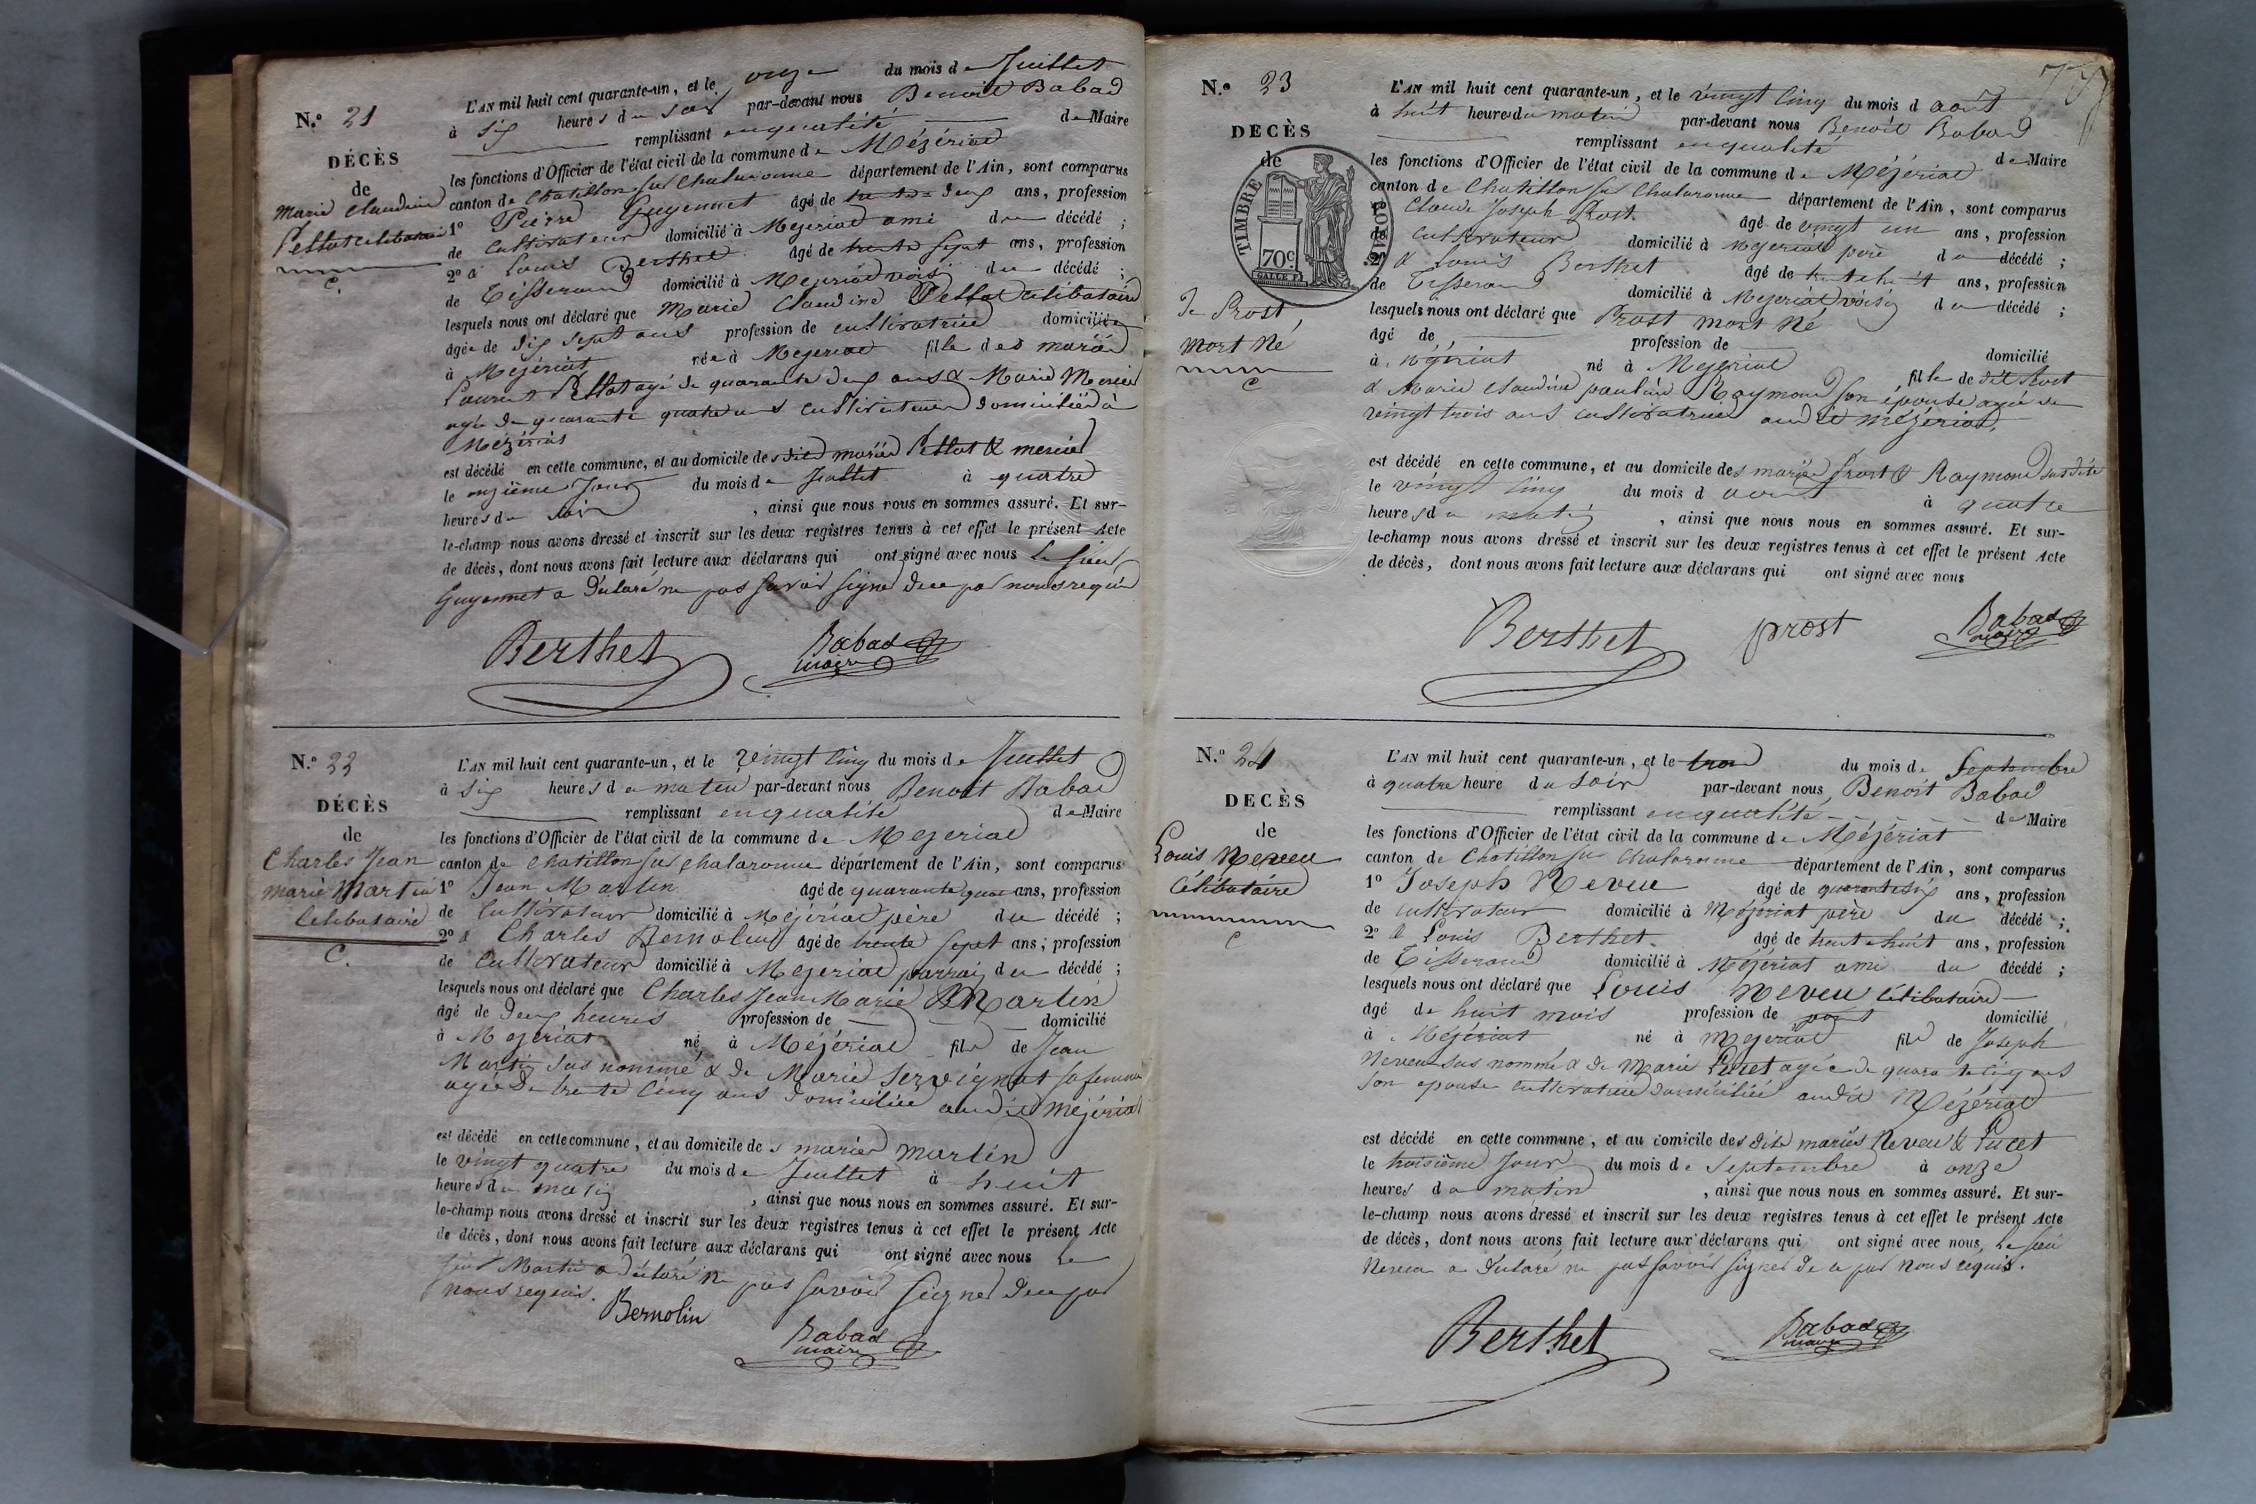 N.o 21
DÉCÈS
de
Marie Claudine
Pellot célibataire
C.
L'AN mil huit cent quarante-un, et le onze du mois de Juillet
à six heures du soir par-devant nous Benoit Babad
remplissant en qualité de Maire
les fonctions d'Officier de l'état civil de la commune de Mézériat
canton de Chatillon sur Chalaronne département de l'Ain, sont comparus
1o Pierre Guyennet âgé de trente deux ans, profession
de cultivateur domicilié à Mezeriat ami du décédé ;
2o & Louis Berthet âgé de trente sept ans, profession
de Tisserand domicilié à Mezeriat voisin du décédé ;
lesquels nous ont déclaré que Marie Claudine Pellot célibataire
âgée de dix sept ans profession de cultivatrice domiciliée
à Mézériat née à Mezeriat fille des mariés
Laurent Pellot agé de quarante deux ans & Marie Mercier
agée de quarante quatre ans cultivateurs domiciliés à
Mézériat
est décédé en cette commune, et au domicile desdits mariés Pellot & mercier
le onzième Jour du mois de Juillet à quatre
heures du soir , ainsi que nous nous en sommes assuré. Et sur-
le-champ nous avons dressé et inscrit sur les deux registres tenus à cet effet le présent Acte
de décès, dont nous avons fait lecture aux déclarans qui ont signé avec nous Le sieur
Guyennet a déclaré ne pas savoir signer de ce par nous requis
Berthet Babad
maire
N.o 22
DÉCÈS
de
Charles Jean
marie Martin
célibataire
C.
L'AN mil huit cent quarante-un, et le vingt cinq du mois de Juillet
à six heures du matin par-devant nous Benoit Babad
remplissant en qualité de Maire
les fonctions d'Officier de l'état civil de la commune de Mezeriat
canton de Chatillon sur Chalaronne département de l'Ain, sont comparus
1o Jean Martin âgé de quarante quatre ans, profession
de Cultivateur domicilié à Mézériat père du décédé ;
2o & Charles Bernolin âgé de trente sept ans, profession
de Cultivateur domicilié à Mezeriat parrain du décédé ;
lesquels nous ont déclaré que Charles Jean Marie Martin
âgé de deux heures profession de domicilié
à Mezeriat né à Mézériat fils de Jean
Martin sus nommé & de Marie Servignat sa femme
agée de trente cinq ans domiciliée audit Mézériat
est décédé en cette commune, et au domicile des mariés martin
le vingt quatre du mois de Juillet à huit
heures du matin , ainsi que nous nous en sommes assuré. Et sur-
le-champ nous avons dressé et inscrit sur les deux registres tenus à cet effet le présent Acte
de décès, dont nous avons fait lecture aux déclarans qui ont signé avec nous Le
sieur Martin a déclaré ne pas savoir signer de ce par
nous requis. Bernolin
Babad
maire
N.o 23
DECÈS
de
TIMBRE ROYAL
70c
Prost
Mort Né
C
L'AN mil huit cent quarante-un, et le vingt cinq du mois d août
à huit heures du matin par-devant nous Benoit Babad
remplissant en qualité de Maire
les fonctions d'Officier de l'état civil de la commune de Mézériat
canton de Chatillon sur Chalaronne département de l'Ain, sont comparus
Claude Joseph Prost âgé de vingt un ans, profession
de cultivateur domicilié à Mezeriat père du décédé ;
2o & Louis Berthet âgé de trente huit ans, profession
de Tisserand domicilié à Mezeriat voisin du décédé ;
lesquels nous ont déclaré que Prost mort né
âgé de profession de domicilié
à Mézériat né à Mezeriat , fils de dit Prost
& Marie Claudine pauline Raymond son épouse agée de
vingt trois ans cultivatrice audit Mézériat,
est décédé en cette commune, et au domicile des mariés Prost & Raymond susdits
le vingt cinq du mois d aout à quatre
heures du matin , ainsi que nous nous en sommes assuré. Et sur-
le-champ nous avons dressé et inscrit sur les deux registres tenus à cet effet le présent Acte
de décès, dont nous avons fait lecture aux déclarans qui ont signé avec nous
Berthet prost Babad
maire
N.o 24
DECÈS
de
Louis Neveu
Célibataire
C
L'AN mil huit cent quarante-un, et le trois du mois de Septembre
à quatre heure du soir par-devant nous Benoit Babad
remplissant en qualité de Maire
les fonctions d'Officier de l'état civil de la commune de Mézériat
canton de Chatillon sur Chalaronne département de l'Ain, sont comparus
1o Joseph Neveu âgé de quarante six ans, profession
de cultivateur domicilié à Mézériat père du décédé ;
2o & Louis Berthet âgé de trente huit ans, profession
de Tisserand domicilié à Mézériat ami du décédé ;
lesquels nous ont déclaré que Louis Neveu célibataire
âgé de huit mois profession de point domicilié
à Mézériat né à Mezeriat fils de Joseph
Neveu sus nommé & de Marie Pucet agée de quarante cinq ans
son épouse cultivatrice domiciliée audit Mézériat
est décédé en cette commune, et au domicile desdits mariés Neveu & Pucet
le troisième Jour du mois de Septembre à onze
heures du matin , ainsi que nous nous en sommes assuré. Et sur-
le-champ nous avons dressé et inscrit sur les deux registres tenus à cet effet le présent Acte
de décès, dont nous avons fait lecture aux déclarans qui ont signé avec nous, Le sieur
Neveu a déclaré ne pas savoir signer de ce par nous requis.
Berthet Babad
maire